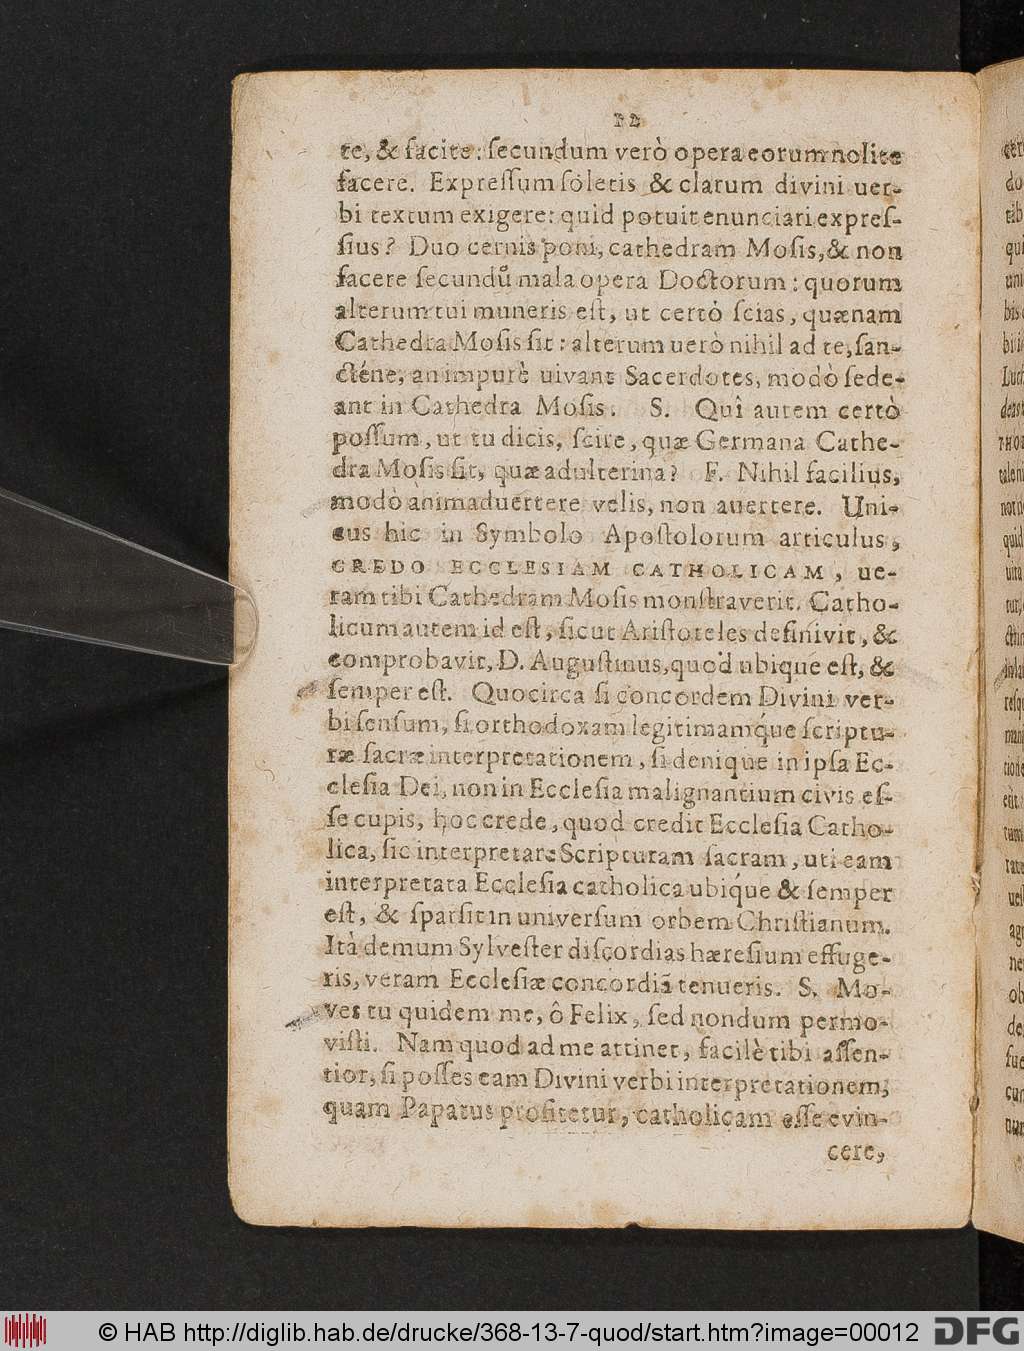 12
te, & facite: ſecundum verò opera eorum nolite
facere. Expreſſum ſoletis & clarum divini uer-
bi textum exigere: quid potuit enunciari expreſ-
ſius? Duo cernis poni, cathedram Moſis, & non
facere ſecundũ mala opera Doctorum: quorum
alterum tui muneris eſt, ut certò ſcias, quænam
Cathedra Moſis ſit: alterum uerò nihil ad te, ſan-
cténe, an impurè uivant Sacerdotes, modò ſede-
ant in Cathedra Moſis. S. Quî autem certò
poſſum, ut tu dicis, ſcire, quæ Germana Cathe-
dra Moſis ſit, quæ adulterina? F. Nihil facilius,
modò animaduertere velis, non auertere. Uni-
cus hic in Symbolo Apoſtolorum articulus,
CREDO ECCLESIAM CATHOLICAM, ue-
ram tibi Cathedram Moſis monſtraverit. Catho-
licum autem id eſt, ſicut Ariſtoteles definivit, &
comprobavit, D. Auguſtinus, quod ubique eſt, &
ſemper eſt. Quocirca ſi concordem Divini ver-
bi ſenſum, ſi orthodoxam legitimamq́ue ſcriptu-
ræ ſacræ interpretationem, ſi denique in ipſa Ec-
cleſia Dei, non in Eccleſia malignantium civis eſ-
ſe cupis, hoc crede, quod credit Eccleſia Catho-
lica, ſic interpretare Scripturam ſacram, uti eam
interpretata Eccleſia catholica ubiq́ue & ſemper
eſt, & ſparſit in univerſum orbem Chriſtianum.
Ità demum Sylveſter diſcordias hæreſium effuge-
ris, veram Eccleſiæ concordiã tenueris. S. Mo-
ves tu quidem me, ô Felix, ſed nondum permo-
viſti. Nam quod ad me attinet, facilè tibi aſſen-
tior, ſi poſſes eam Divini verbi interpretationem,
quam Papatus profitetur, catholicam eſſe evin-
cere,
© HAB http://diglib.hab.de/drucke/368-13-7-quod/start.htm?image=00012
DFG